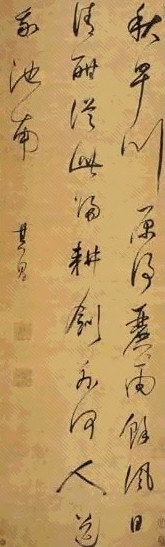 秋早川原淨麗雨餘風日
清酣從此歸耕劍外何人送
我池南
其昌